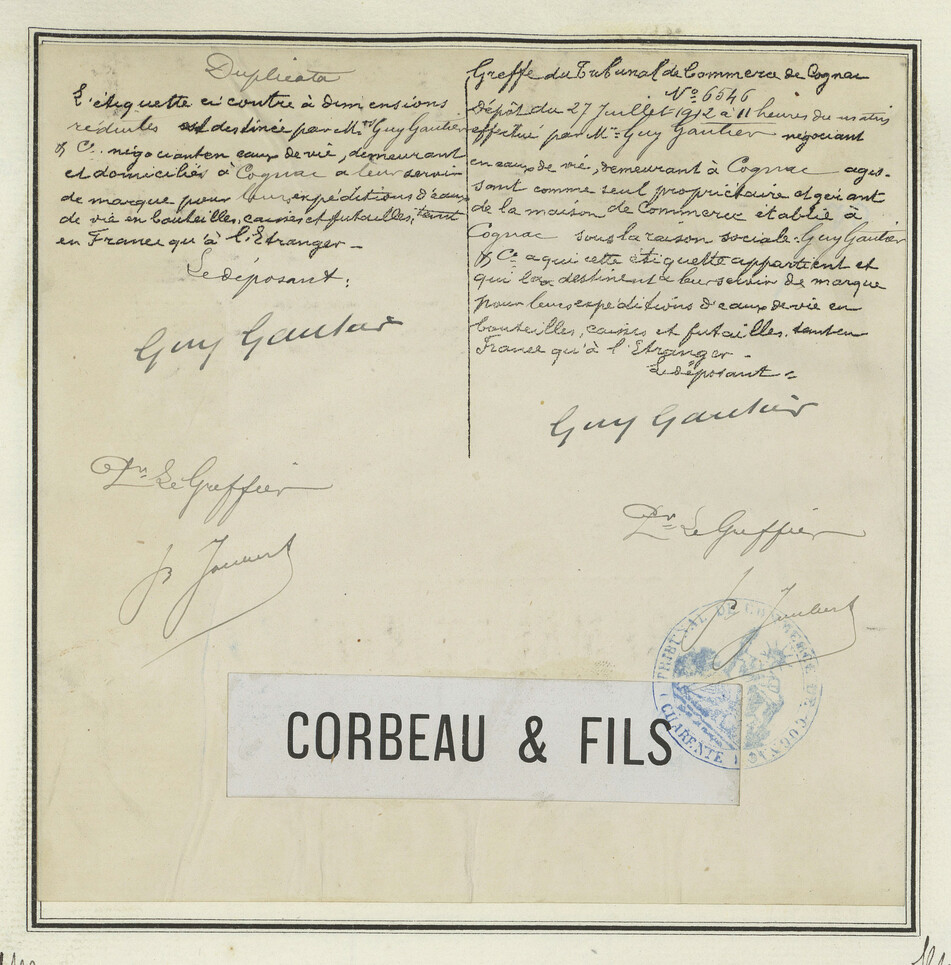 Duplicata
L'étiquette ci contre à dimensions
réduites est destinée par M.rs Guy Gautier
& Cie. négociants en eaux de vie, demeurant
et domiciliés à Cognac a leur servir
de marque pour leurs expéditions d'eaux
de vie en bouteilles, caisses et futailles, tant
en France qu'à l'Etranger -
Le déposant:
Guy Gautier
Pr. Le Greffier
Greffe du Tribunal de Commerce de Cognac
No 6546
Dépôt du 27 Juillet 1912 à 11 heures du matin
effectué par Mr. Guy Gautier négociant
en eaux de vie, demeurant à Cognac agis-
sant comme seul propriétaire et gérant
de la maison de Commerce établie à
Cognac sous la raison sociale: Guy Gautier
& Cie a qui cette étiquette appartient et
qui la destinent a leur servir de marque
pour leurs expéditions d'eaux de vie en
bouteilles, caisses et futailles, tant en
France qu'à l'Etranger -
Le déposant -
Guy Gautier
Pr. Le Greffier
TRIBUNAL DE COMMERCE DE COGNAC
CHARENTE
CORBEAU & FILS